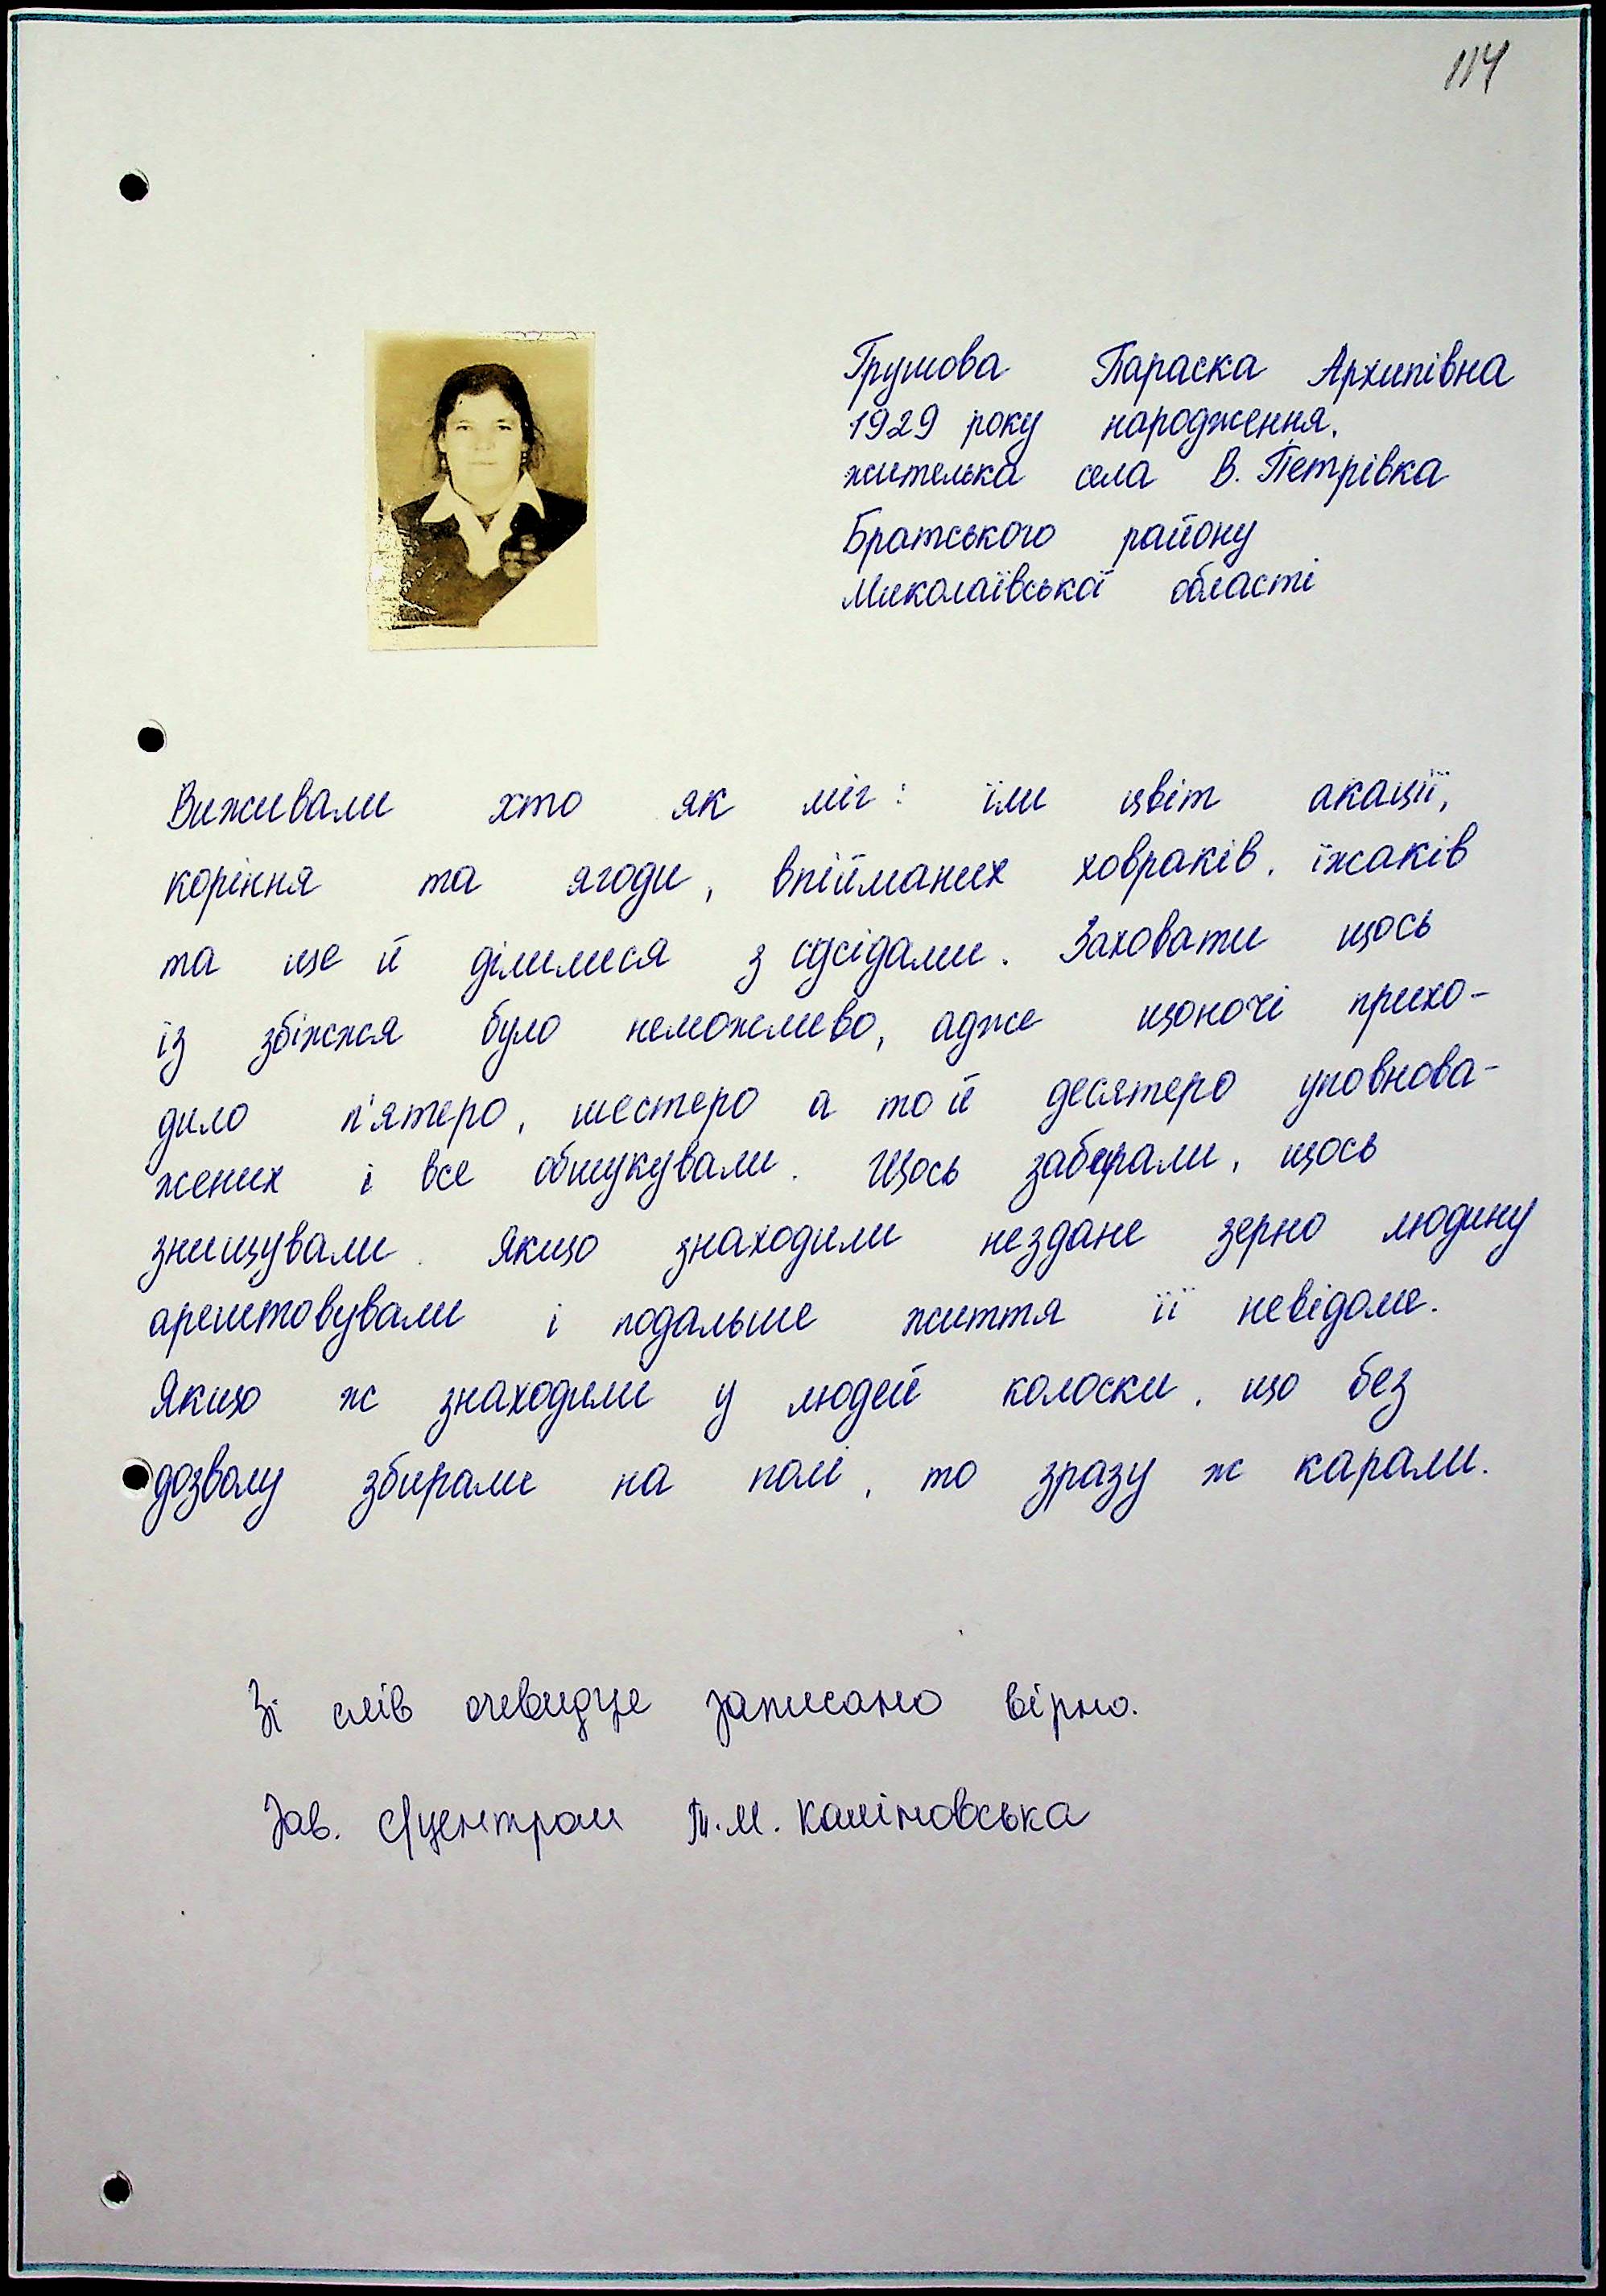 114
Грушова Параска Архипівна
1929 року народження.
жителька села В. Петрівка
Братського району
Миколаївської області
Виживали хто як міг: їли цвіт акації,
коріння та ягоди, впійманих ховраків, їжаків
та ще й ділилися з сусідами. Заховати щось
із збіжжя було неможливо, адже щоночі прихо-
дило п'ятеро, шестеро а то й десятеро уповнова-
жених і все обшукували. Щось забирали, щось
знищували. Якщо знаходили нездане зерно людину
арештовували і подальше життя її невідоме.
Якщо ж знаходили у людей колоски, що без
дозволу збирали на полі, то зразу ж карали.
Зі слів очевидце записано вірно.
Зав. с/центром Т.М. Каліновська